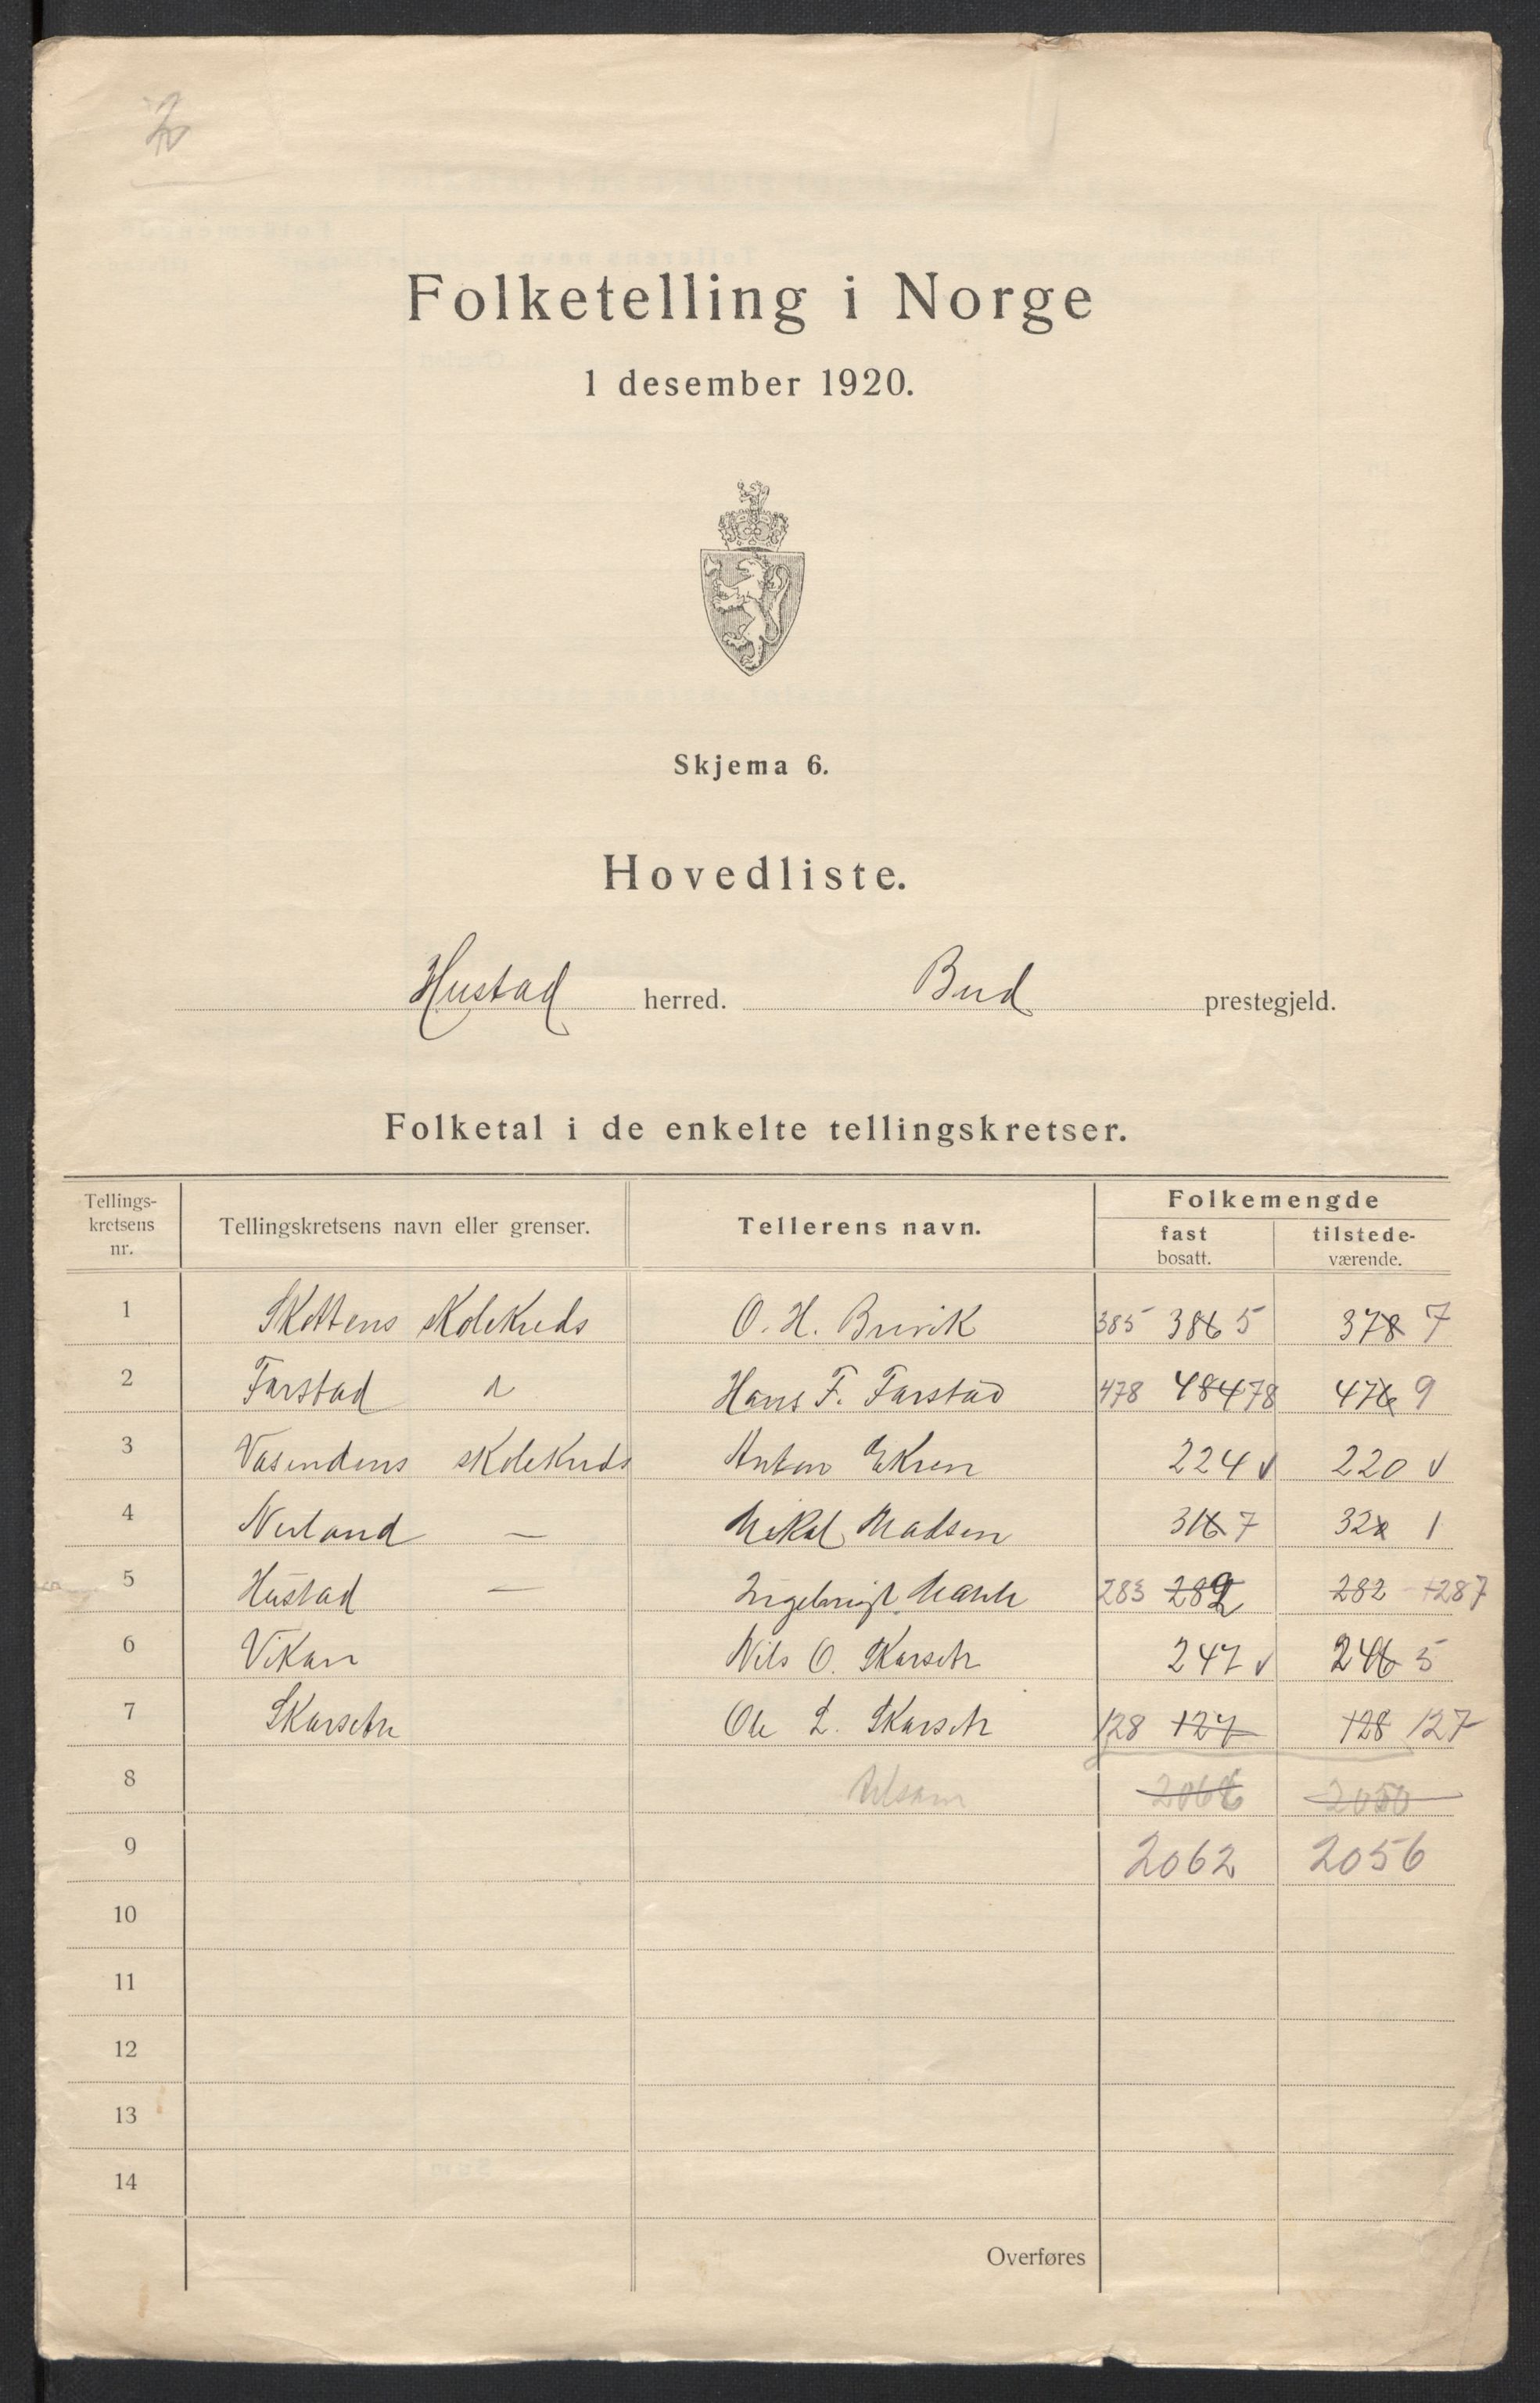 2
Folketelling i Norge
1 desember 1920.
Skjema 6.
Hovedliste.
Hustad herred. Bud prestegjeld.
Folketal i de enkelte tellingskretser.
Tellings-
kretsens
nr.
Tellingskretsens navn eller grenser.
Tellerens navn.
Folkemengde
fast
bosatt.
tilstede-
værende.
1 Skottens skolekreds O. H. Bruvik 385 386 5 378 7
2 Farstad Hans F. Farstad 478 484 78 476 9
3 Vasendens skolekreds Anton Ekren 224 v 220 v
4 Nerland — Mikal Madsen 316 7 320 1
5 Hustad — Ingebrigt 283 282 282 287
6 Vikan Nils O. Skarseth 247 v 246 5
7 Skarseth Ole L. Skarseth 128 127 128 127
8 tilsam 2066 2050
9 2062 2056
10
11
12
13
14
Overføres